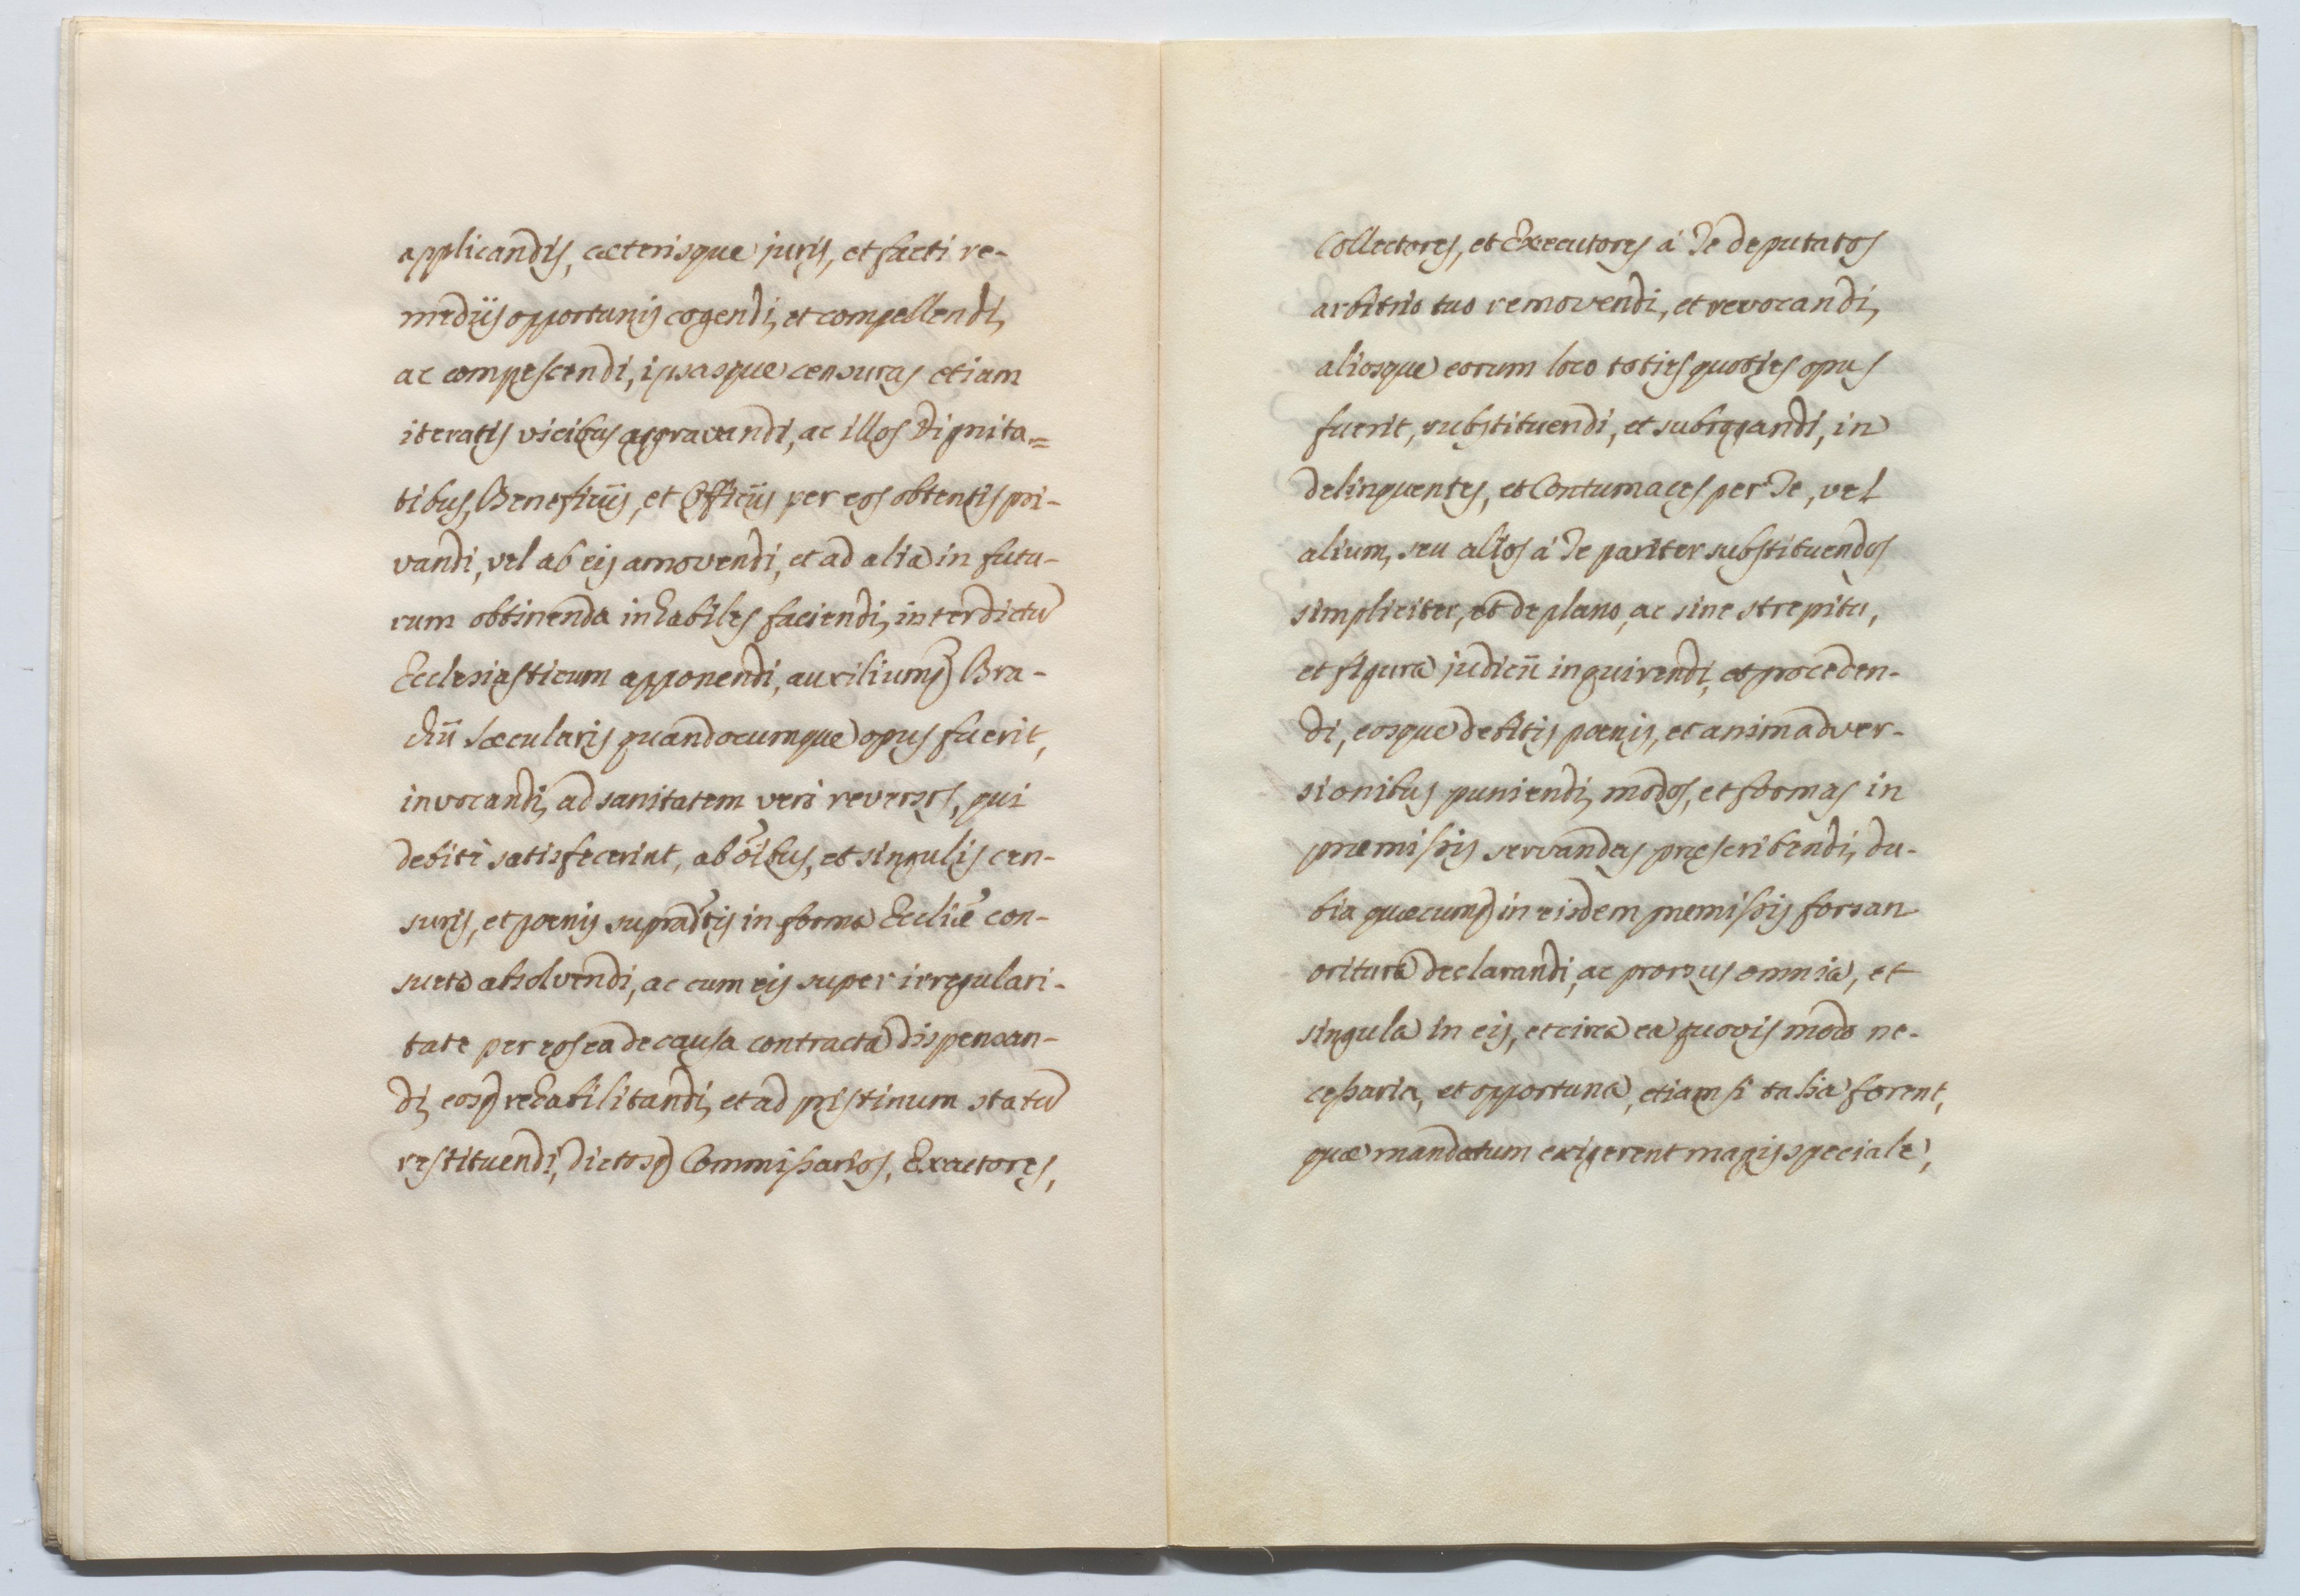 applicandis, cæterisque juris, et facti re-
medijs opportunis cogendi, et compellendi,
ac compescendi, ipsasque censuras etiam
iteratis vicibus aggravandi, ac illos Dignita=
tibus, Beneficijs, et Officijs per eos obtentis pri-
vandi, vel ab eis amovendi, et ad alia in futu-
rum obtinenda inhabiles faciendi, interdictũ
Ecclesiasticum apponendi, auxiliumq̃ Bra-
chii Sæcularis quandocumque opus fuerit,
invocandi, ad sanitatem verò reversos, qui
debitè satisfecerint, ab õibus, et singulis cen-
suris, et pœnis supradc̃tis in forma Eccliæ̃ con-
sueta absolvendi, ac cum eis super irregulari-
tate per eos ea de causa contracta dispensan-
di, eosq̃ rehabilitandi, et ad pristinum statũ
restituendi, dictosq̃ Commissarios, Exactores,
Collectores, et Executores á Te deputatos
arbitrio tuo removendi, et revocandi,
aliosque eorum loco toties quoties opus
fuerit, substituendi, et subrogandi, in
delinquentes, et Contumaces per Te, vel
alium, seu alios á Te pariter substituendos
simpliciter, et de plano, ac sine strepitu,
et figura judicii inquirendi, et proceden-
di, eosque debitis pœnis, et animadver-
sionibus puniendi, modos, et formas in
præmissis servandas præscribendi, du-
bia quæcumq̃ in eisdem præmissis forsan
oritura declarandi, ac prorsus omnia, et
singula in eis, et circa ea quovis modo ne-
cessaria, et opportuna, etiam si talia forent,
quæ mandatum exigerent magis speciale,